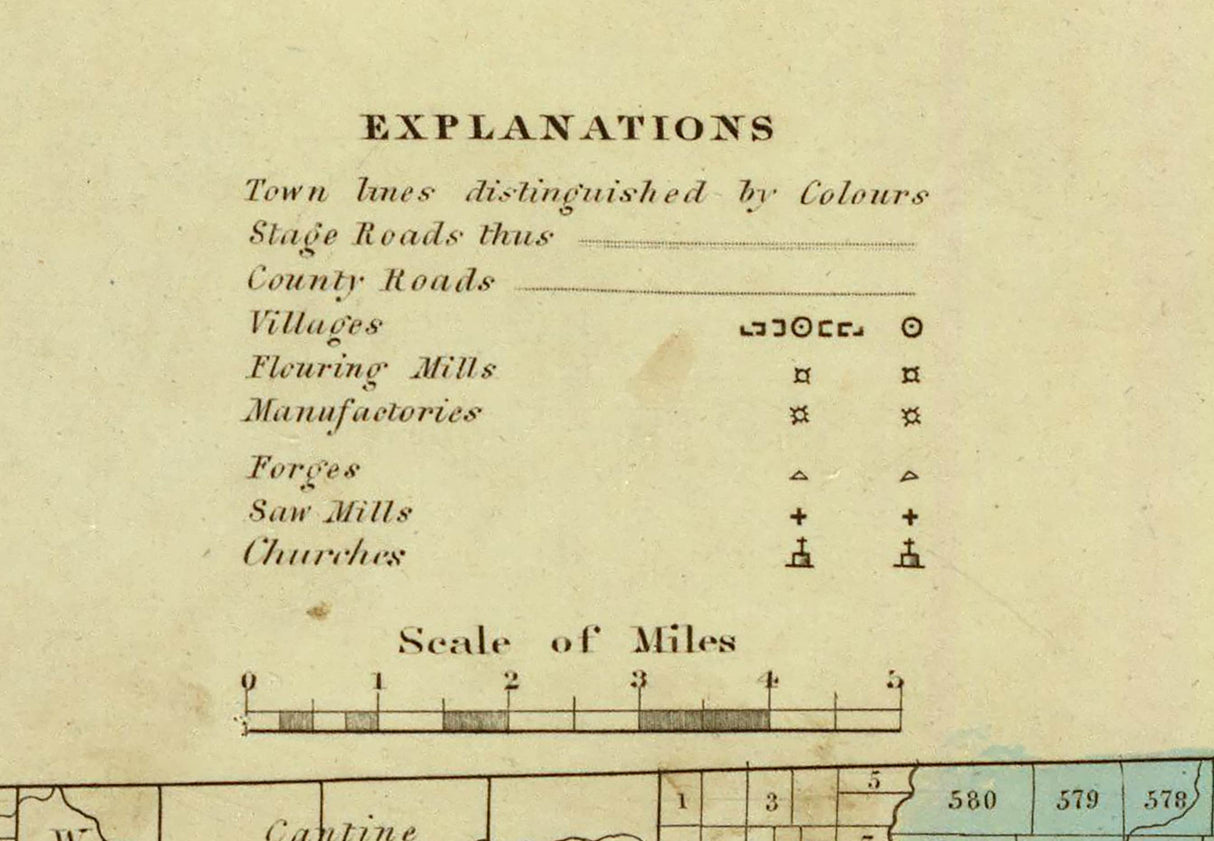 EXPLANATIONS
Town lines distinguished by Colours
Stage Roads thus
County Roads
Villages
Flouring Mills
Manufactories
Forges
Saw Mills
Churches
Scale of Miles
0 1 2 3 4 5
1 3 5 580 579 578
W Cantine